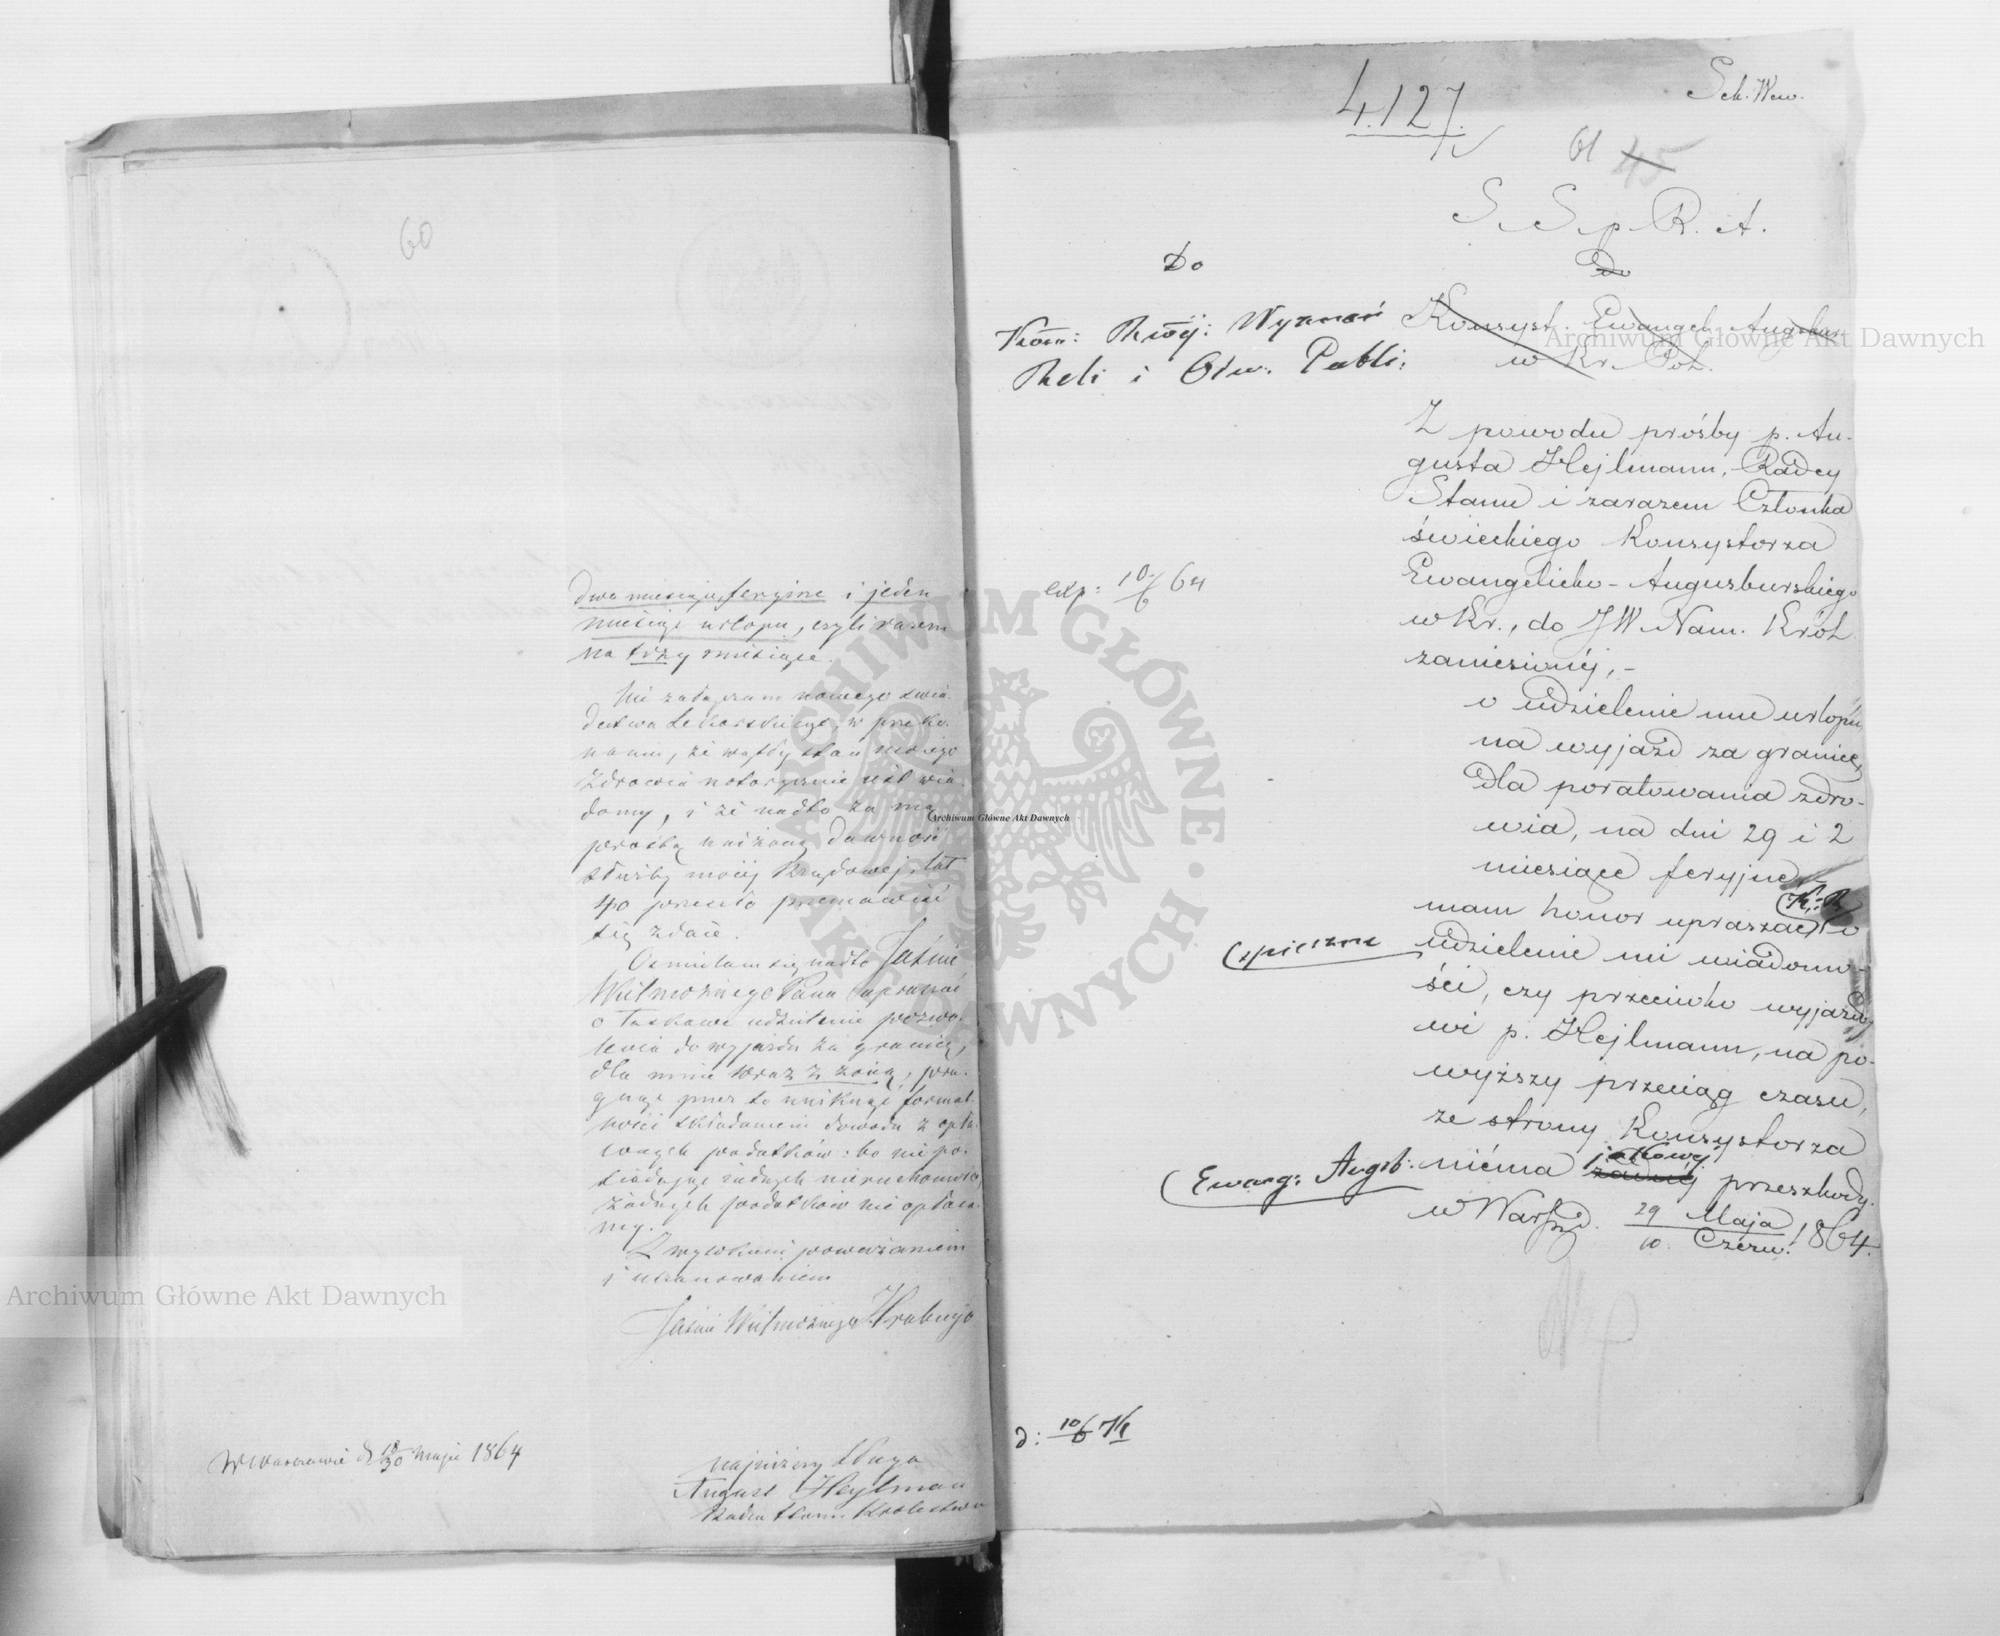 60
dwa miesiące feryjne i jeden
miesiąc urlopu, czyli razem
na trzy miesiące.
Nie załączam nowego świa-
dectwa Lekarskiego, w przeko-
naniu, że wątły stan mojego
zdrowia notorycznie jest wia-
domy, i że nadto za mą
prośbą ważoną dawność
służby mojéj Rządowej, lat
40 przeszło przemawiać
się zdaie.
Ośmielam się nadto Jaśnie
Wielmożnego Pana upraszać
o łaskawe udzielenie pozwo-
lenia do wyjazdu za granicę,
dla mnie wraz z żoną, pra-
gnąc przez to uniknąć formal-
ności składaniem dowodu z opła-
conych podatków: bo nie po-
siadając żadnych nieruchomości,
żadnych podatków nie opłaca-
my.
Z wysokiém poważaniem
i uszanowaniem
Jaśnie Wielmożnego Hrabiego
W Warszawie d. 18/30 Maja 1864
najniższy Sługa
August Heylman
Radca Stanu Królestwa
4127.
61 45
S. S. p. R. A.
Do
do
Kom: Rząj: Wyznań
Reli i Ośw. Publi:
Konsyst. Ewangel. Augsbur.
w Kr. Pol.
Z powodu prośby p. Au-
gusta Hejlmann, Radcy
Stanu i zarazem Członka
świeckiego Konsystorza
Ewangelicko-Augsburskiego
w Kr., do JW Nam. Król.
zaniesionéj,-
exp: 10/6 64
o udzielenie mu urlopu
na wyjazd za granicę,
dla poratowania zdro-
wia, na dni 29 i 2
miesiące feryjne,-
mam honor upraszać K. R. o
spieszne udzielenie mi wiadomo-
ści, czy przeciwko wyjazdo-
wi p. Hejlmann, na po-
wyższy przeciąg czasu,
ze strony Konsystorza
Ewang: Augsb: niéma jakowej żadnéj przeszkody.
w Warsz. d. 29 Maja / 10. Czerw. 1864.
d: 10/6
Archiwum Główne Akt Dawnych
Archiwum Główne Akt Dawnych
Archiwum Główne Akt Dawnych
ARCHIWUM GŁÓWNE AKT DAWNYCH